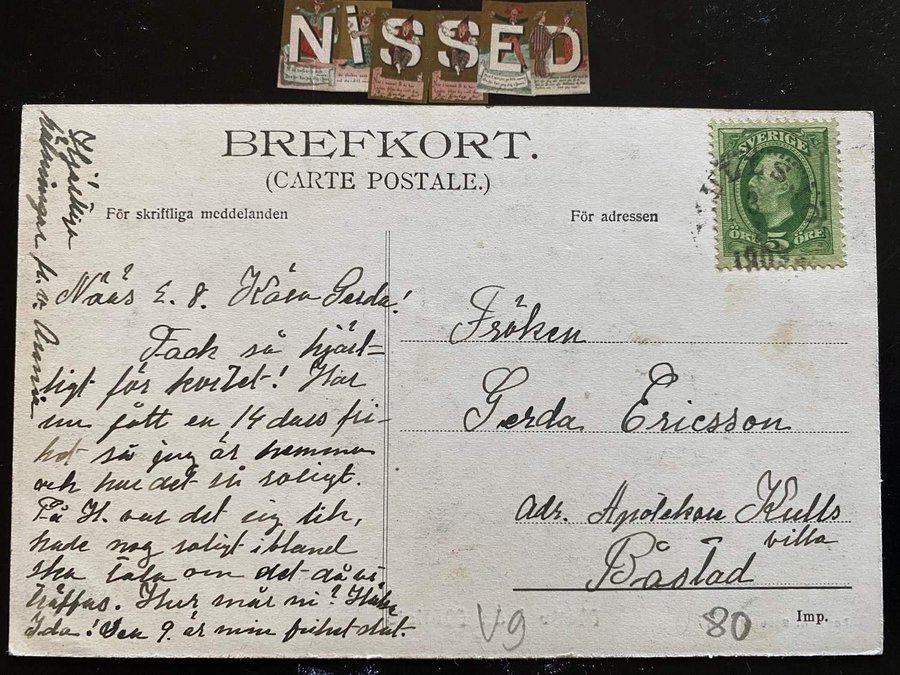 NISSED
BREFKORT.
(CARTE POSTALE.)
För skriftliga meddelanden
För adressen
SVERIGE
ÖRE 5 ÖRE
Hjärtliga
hälsningar fr. v. Anna
Nääs 2. 8. Kära Gerda!
Tack så hjärt-
ligt för kortet! Har
nu fått en 14 dars fri-
het så jag är hemma
och har det så roligt.
På H. var det sig lik,
hade nog roligt ibland
ska tala om det då vi
träffas. Hur mår ni? Hälsa
Ida! Den 9. är min frihet slut.
Fröken
Gerda Ericsson
adr. Apotekar Kulls
villa
Båstad
Imp.
V9
80